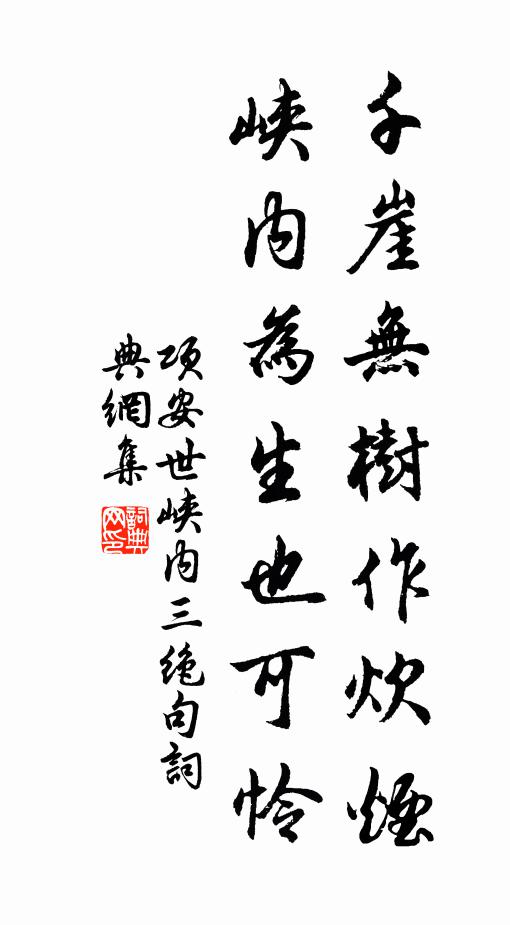 千崖無樹作炊煙
峽内為生也可怜
項安世峽内三絶句詞
典網集
詞典網印